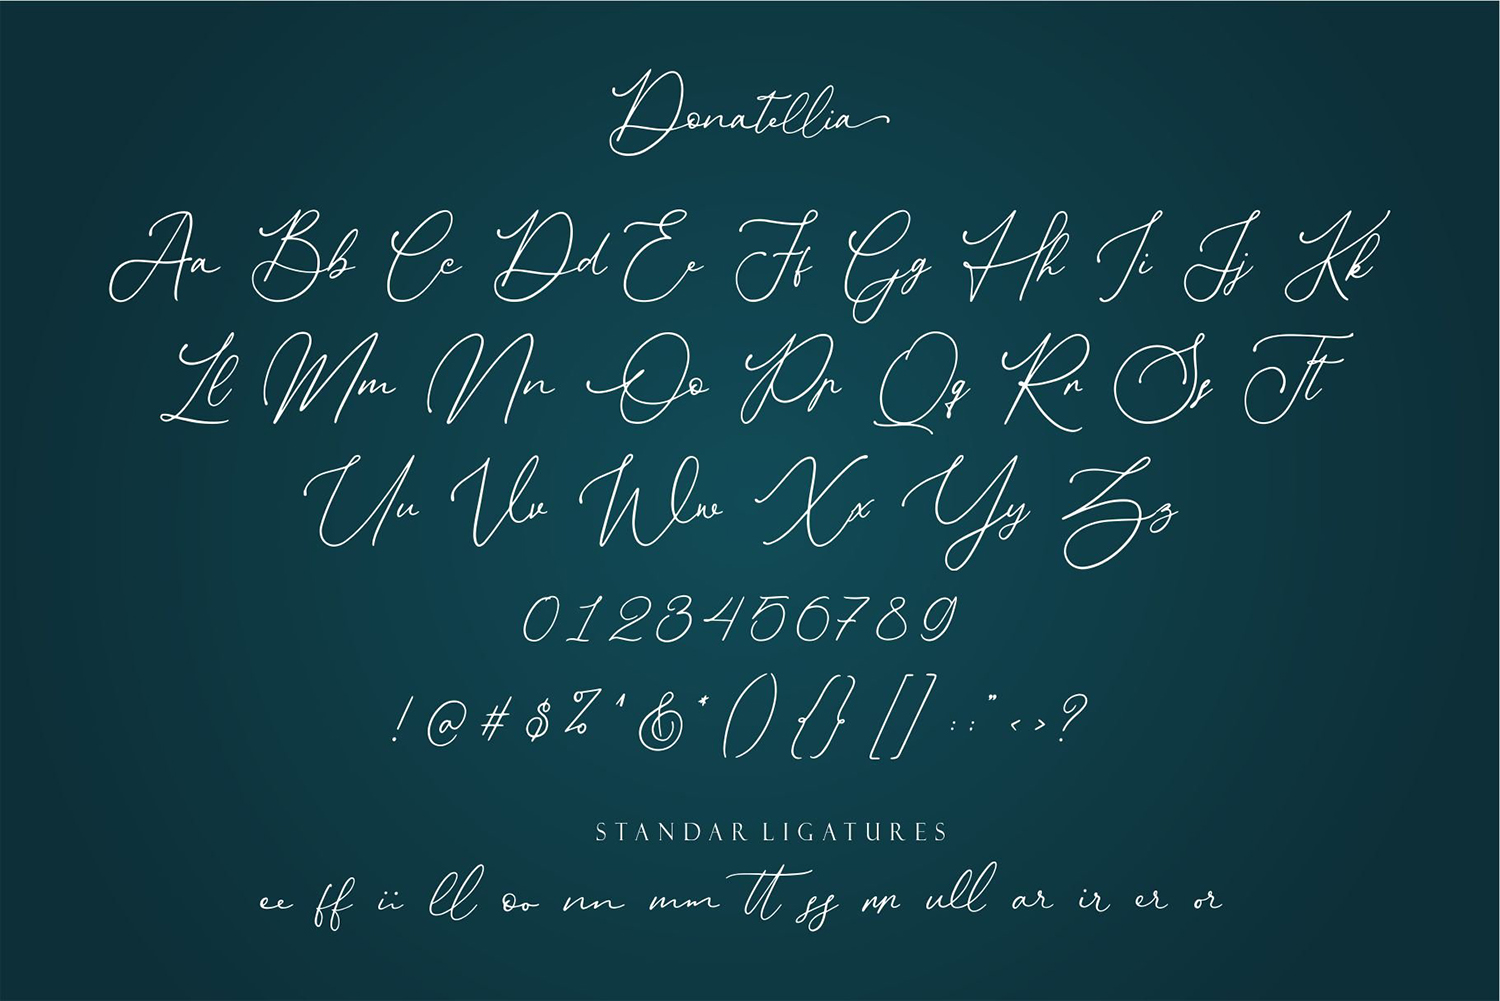 Donatellia
Aa Bb Cc Dd Ee Ff Gg Hh Ii Jj Kk
Ll Mm Nn Oo Pp Qq Rr Ss Tt
Uu Vv Ww Xx Yy Zz
0123456789
! @ # $ % ^ & * ( ) { } [ ] : : " < > ?
STANDAR LIGATURES
ee ff ii ll oo nn mm tt ss rr ull ar ir er or